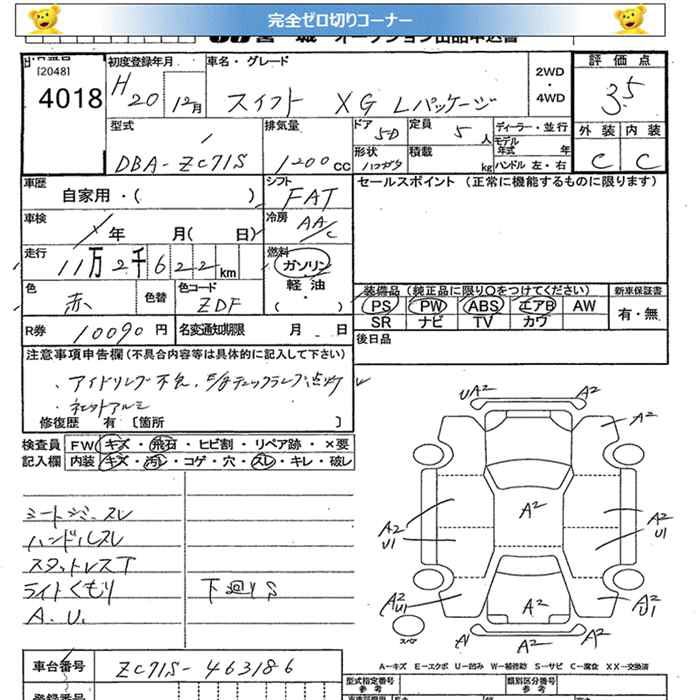 完全ゼロ切りコーナー
宮城 オークション出品申込書
[2048]
4018
初度登録年月
H20 12月
車名・グレード
スイフト XG Lパッケージ
2WD
・
4WD
評価点
3.5
外装 内装
C C
型式
DBA-ZC71S
排気量
1200cc
ドア 5D
定員 5人
形状
積載 kg
ディーラー・並行
モデル
年式 年
ハンドル 左・右
車歴
自家用・( )
シフト
FAT
車検
年 月( 日)
冷房
AAC
走行
11万2千622km
燃料
ガソリン
軽油
・
( )
色
赤
色替
色コード
ZDF
R券 10090円
名変通知期限 月 日
セールスポイント (正常に機能するものに限ります)
装備品(純正品に限り○をつけてください)
PS PW ABS エアB AW
SR ナビ TV カワ
新車保証書
有・無
後日品
注意事項申告欄(不具合内容等は具体的に記入して下さい)
・アイドリング不良、E/gチェックランプ点灯
・ネットアルミ
修復歴 有〔箇所 〕
検査員
記入欄
FW キズ・飛石・ヒビ割・リペア跡・×要
内装 キズ・汚レ・コゲ・穴・スレ・キレ・破レ
シートシミ・スレ
ハンドルスレ
スタットレスT
ライトくもり
A.U.
下廻りS
UA2 A2
A2
A2
A2
U1
A2
U1
A2
U1
A2
A2
U1
A A2
スペア
A-キズ E-エクボ U-凹み W-補修跡 S-サビ C-腐食 XX-交換済
車台番号
ZC71S-463186
型式指定番号
参考
類別区分番号
参考